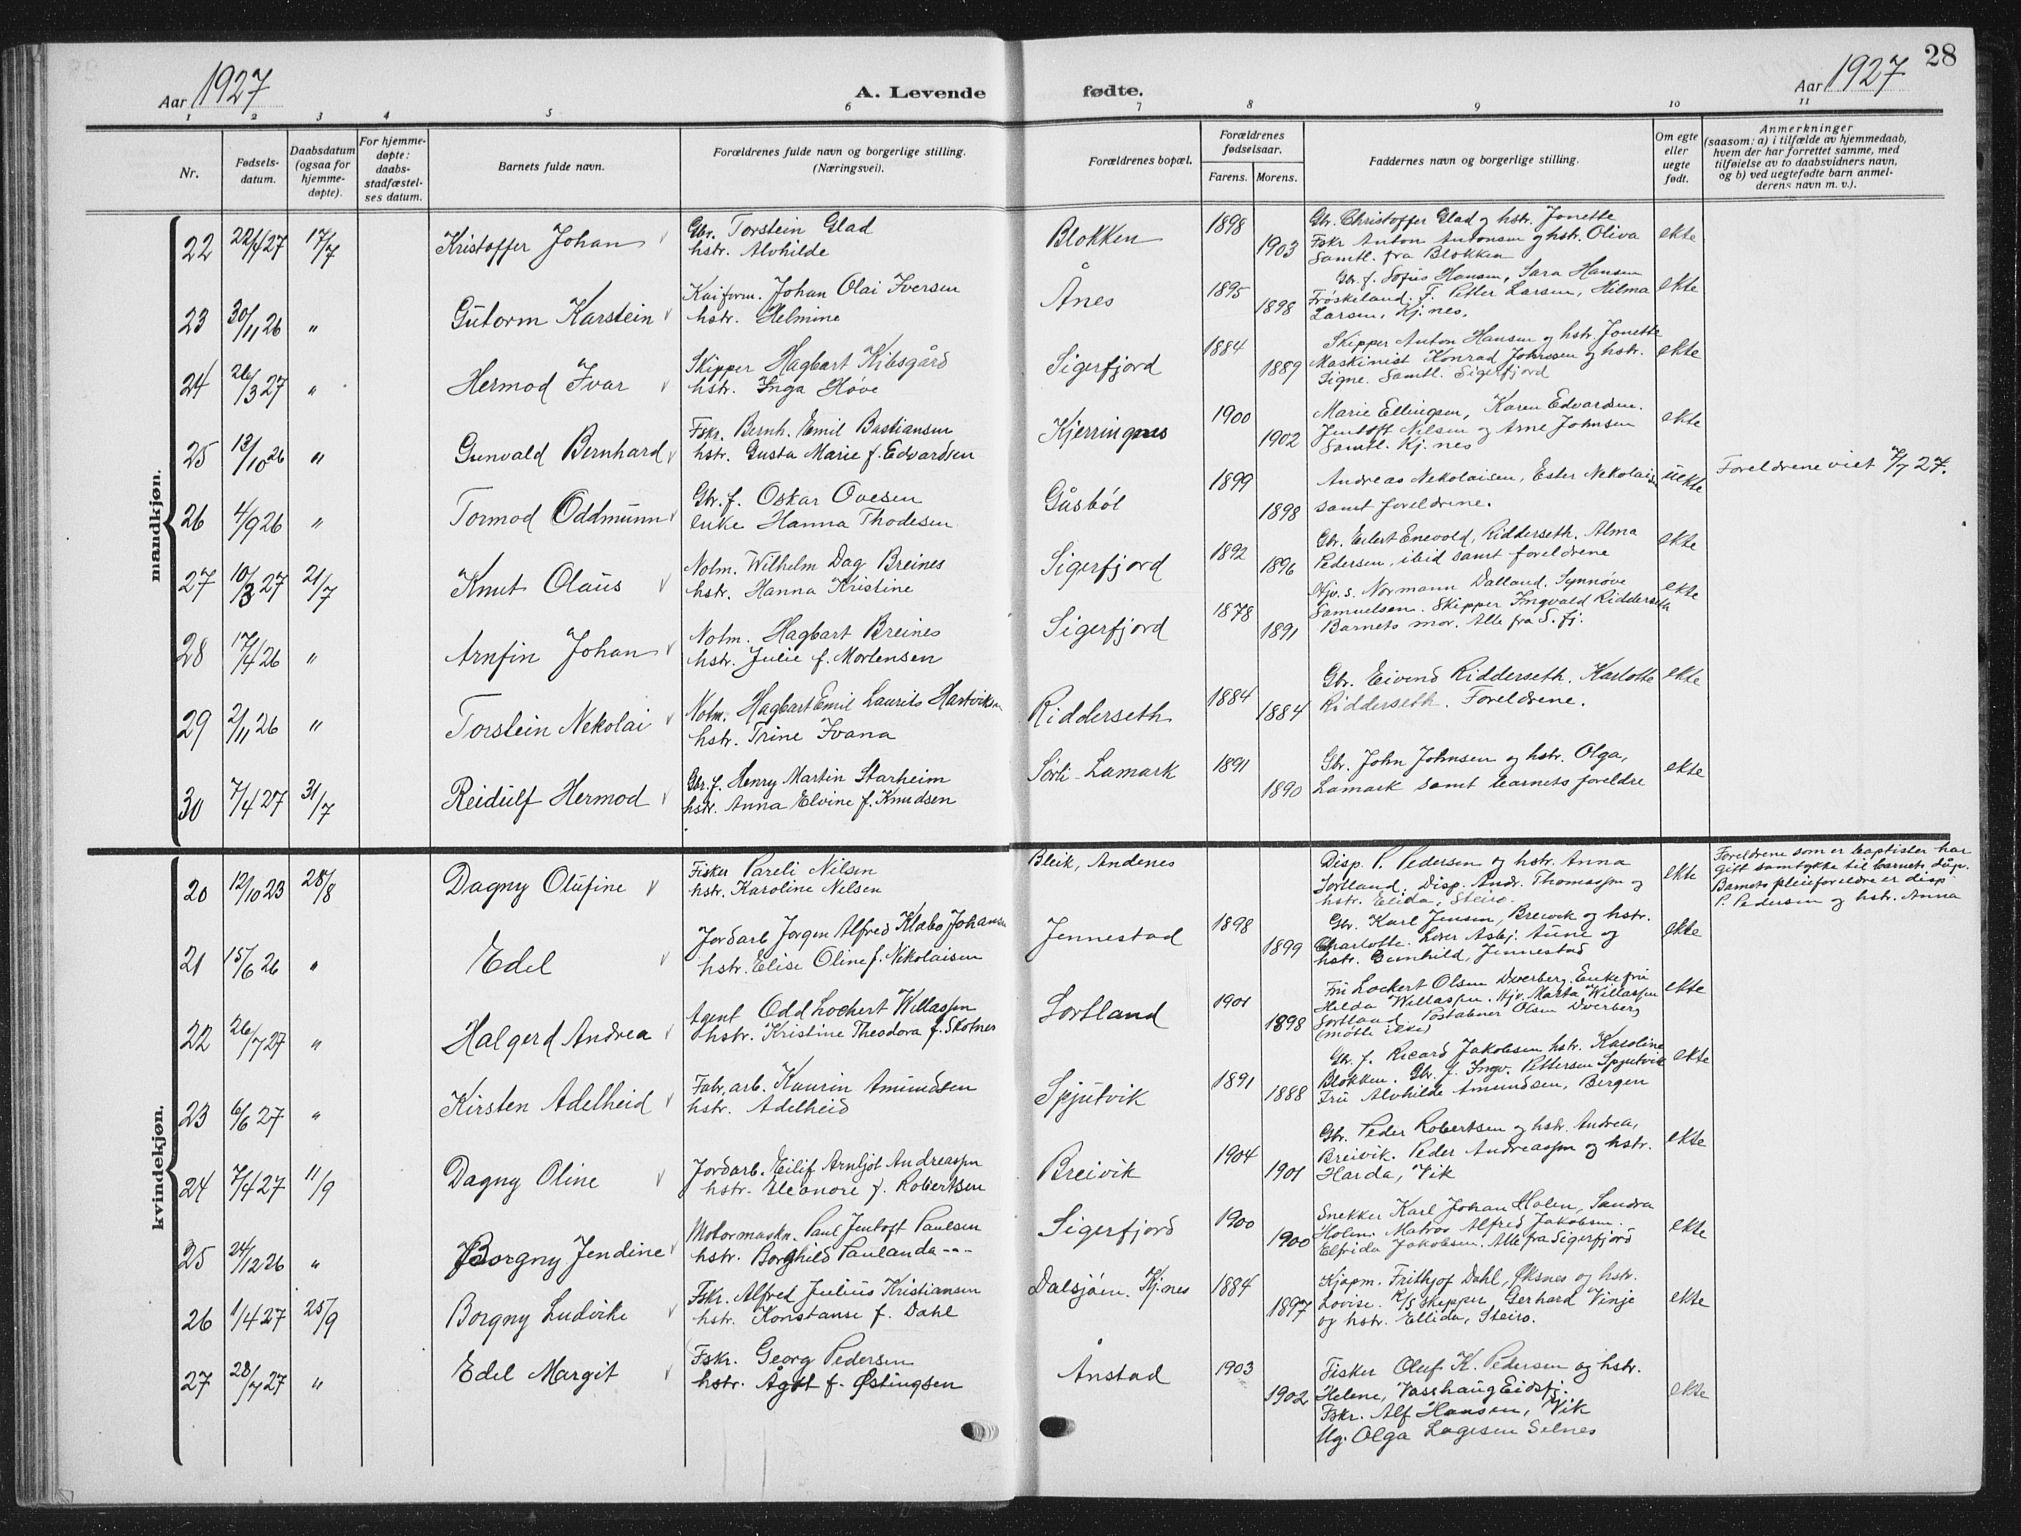 28
Aar 1927
A. Levende fødte.
Aar 1927
1 2 3 4 5 6 7 8 9 10 11
Nr.
Fødsels-
datum.
Daabsdatum
(ogsaa for
hjemme-
døpte).
For hjemme-
døpte:
daabs-
stadfæstel-
ses datum.
Barnets fulde navn.
Forældrenes fulde navn og borgerlige stilling.
(Næringsvei).
Forældrenes bopæl.
Forældrenes
fødselsaar.
Farens. Morens.
Faddernes navn og borgerlige stilling.
Om egte
eller
uegte
født.
Anmerkninger
(saasom: a) i tilfælde av hjemmedaab,
hvem der har forrettet samme, med
tilføielse av to daabsvidners navn,
og b) ved uegtefødte barn anmel-
derens navn m. v.).
mandkjøn.
22 22/4 27 17/7 Kristoffer Johan
Gbr. Torstein Glad
hstr. Alvhilde
Blokken 1898 1903
Gbr. Christoffer Glad og hstr. Jonette
Fskr Anton Antonsen og hstr. Oliva
Samtl. fra Blokken
ekte
23 30/11 26 " Gutorm Karstein
Kaiform. Johan Olai Iversen
hstr. Helmine
Ånes 1895 1898
Gbr. f. Sofus Hansen, Sara Hansen
Frøskeland. F. Petter Larsen, Hilma
Larsen, Kj.nes.
ekte
24 26/3 27 " Hermod Ivar
Skipper Hagbart Kibsgård
hstr. Inga Høve
Sigerfjord 1884 1889
Skipper Anton Hansen og hstr. Jonette
Maskinist Konrad Johnssen og hstr.
Signe. Samtl. Sigerfjord
ekte
25 13/10 26 " Gunvald Bernhard
Fskr. Bernh. Emil Bastiansen
hstr. Gusta Marie f. Edvardsen
Kjerringnes 1900 1902
Marie Ellingsen, Karen Edvardsen.
Jentoft Nilsen og Arne Johnsen
Samtl. Kj.nes
ekte
26 4/9 26 " Tormod Oddmunn
Gbr. f. Oskar Ovesen
enke Hanna Thodesen
Gåsbøl 1899 1898
Andreas Nekolaisen, Ester Nekolaisen
samt foreldrene.
uekte
Foreldrene viet 7/7 27.
27 10/3 27 21/7 Knut Olaus
Notm. Wilhelm Dag Breines
hstr. Hanna Kristine
Sigerfjord 1892 1896
Gbr. Eilert Enevold, Ridderseth. Alma
Pedersen, ibid samt foreldrene
ekte
28 17/4 26 " Arnfin Johan
Notm. Hagbart Breines
hstr. Julie f. Mortensen
Sigerfjord 1878 1891
Hjv. s. Normann Dalland. Synnøve
Samuelsen. Skipper Ingvald Ridderseth
Barnets mor. Alle fra S.fj.
ekte
29 2/11 26 " Torstein Nekolai
Notm. Hagbart Emil Laurits Hartviksen
hstr. Trine Ivana
Ridderseth 1884 1884
Gbr. Eivind Ridderseth. Karlotte
Ridderseth. Foreldrene.
ekte
30 7/4 27 31/7 Reidulf Hermod
Gbr. f. Henry Martin Starheim
hstr. Anna Elvine f. Knudsen
Sørli - Lamark 1891 1890
Gbr. John Johnsen og hstr. Olga,
Lamark samt barnets foreldre
ekte
kvindekjøn.
20 12/10 23 28/8 Dagny Olufine
Fisker Pareli Nilsen
hstr. Karoline Nilsen
Bleik, Andenes
Disp. P. Pedersen og hstr. Anna
Sortland. Disp. Andr. Thomassen og
hstr. Elida, Steiro.
ekte
Foreldrene som er baptister har
gitt samtykke til barnets dåp.
Barnets pleieforeldre er disp
P. Pedersen og hstr. Anna
21 15/6 26 " Edel
Jordarb. Jørgen Alfred Klabo Johansen
hstr. Elise Oline f. Nikolaisen
Jennestad 1898 1899
Gbr. Karl Jensen, Breivik og hstr.
Charlotte. Lærer Asbj. Aune og
hstr. Gunhild, Jennestad
ekte
22 26/7 27 " Halgerd Andrea
Agent Odd Lockert Willassen
hstr. Kristine Theodora f. Skotnes
Sortland 1901 1898
Fru Lockert Olsen Dverberg. Enkefru
Hilda Willassen. Hjv. Marta Willassen
Sortland. Postabner Olsen Dverberg
(møtte ikke)
ekte
23 6/6 27 " Kirsten Adelheid
Fabr. arb. Kaurin Amundsen
hstr. Adelheid
Spjutvik 1891 1888
Gbr. f. Ricard Jakobsen hstr. Karoline
Blokken. Gbr. f. Ingv. Pettersen Spjutvik
Fru Alvhilde Amundsen, Bergen
ekte
24 7/4 27 11/9 Dagny Oline
Jordarb. Eilif Arnljot Andreassen
hstr. Eleonore f. Robertsen
Breivik 1904 1901
Gbr. Peder Robertsen og hstr. Andrea,
Breivik. Peder Andreassen og hstr.
Harda, Vik
ekte
25 24/12 26 " Borgny Jendine
Motormaskn. Paul Jentoft Paulsen
hstr. Borghild Paulanda ---
Sigerfjord 1900 1900
Snekker Karl Johan Holen, Sandra
Holm. Matros Alfred Jakobsen.
Elfrida Jakobsen. Alle fra Sigerfjord
ekte
26 1/4 27 25/9 Borgny Ludvike
Fskr. Alfred Julius Kristiansen
hstr. Konstanse f. Dahl
Dalsjøen. Kj.nes 1884 1897
Kjøpm. Frithjof Dahl, Øksnes og hstr.
Lovise. R/S skipper Gerhard Vinje
og hstr. Ellida, Steiro.
ekte
27 28/7 27 " Edel Margit
Fskr. Georg Pedersen
hstr. Ågot f. Østingsen
Ånstad 1903 1902
Fisker Oluf K. Pedersen og hstr.
Helene, Vasshaug Eidsfj.
Fskr. Alf Hansen, Vik
Ug. Olga Lagesen Selnes
ekte